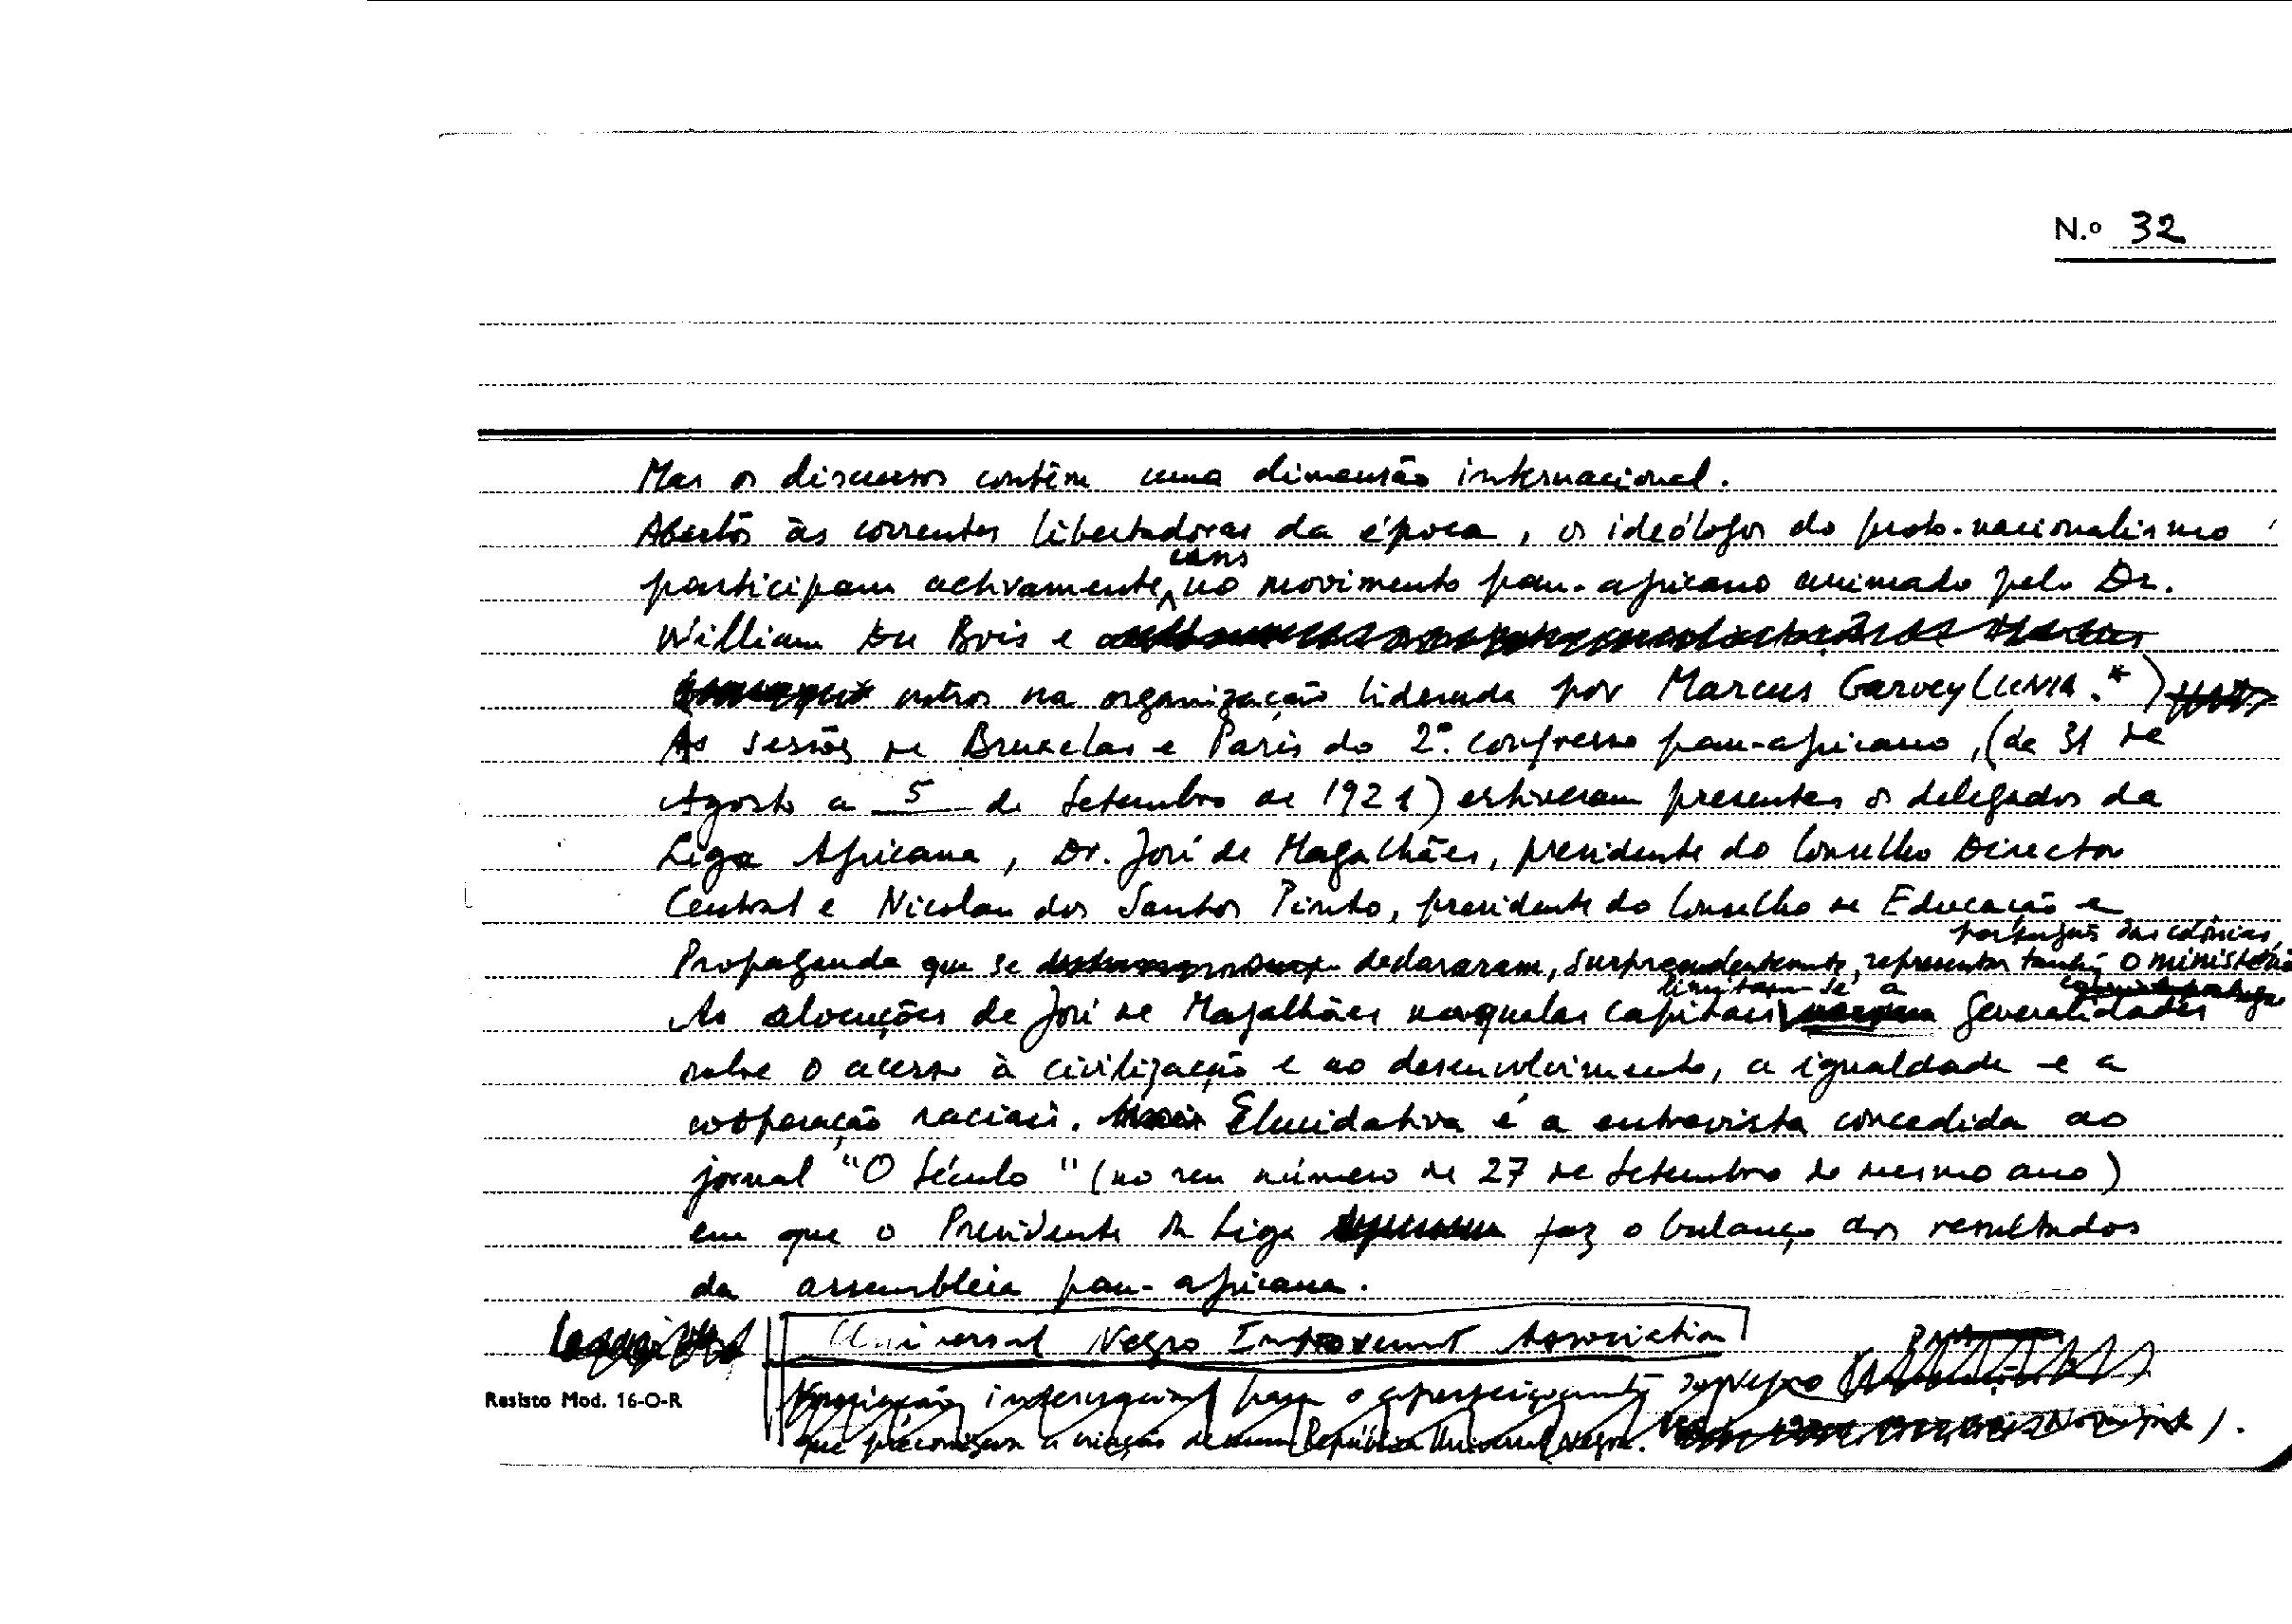 N.º 32
Mas os discursos contêm uma dimensão internacional.
Abertos às correntes libertadoras da época, os ideólogos do proto-nacionalismo
participam activamente, uns no movimento pan-africano animado pelo Dr.
William Du Bois e
outros na organização liderada por Marcus Garvey (UNIA.*)
Às sessões de Bruxelas e Paris do 2º. congresso pan-africano, (de 31 de
Agosto a 5 de Setembro de 1921) estiveram presentes os delegados da
Liga Africana, Dr. José de Magalhães, presidente do Conselho Director
Central e Nicolau dos Santos Pinto, presidente do Conselho de Educação e
Propaganda que se declararam, surpreendentemente, representar também o ministério
português das colónias,
As alocuções de José de Magalhães naquelas capitais limitam-se a generalidades
sobre o acesso à civilização e ao desenvolvimento, a igualdade e a
cooperação raciais. Elucidativa é a entrevista concedida ao
jornal "O Século" (no seu número de 27 de Setembro do mesmo ano)
em que o Presidente da Liga faz o balanço dos resultados
da assembleia pan-africana.
Universal Negro Improvemt Association
Associação internacional para o aperfeiçoamento do Negro
que preconizava a criação de uma República Universal Negra.
Resisto Mod. 16-O-R